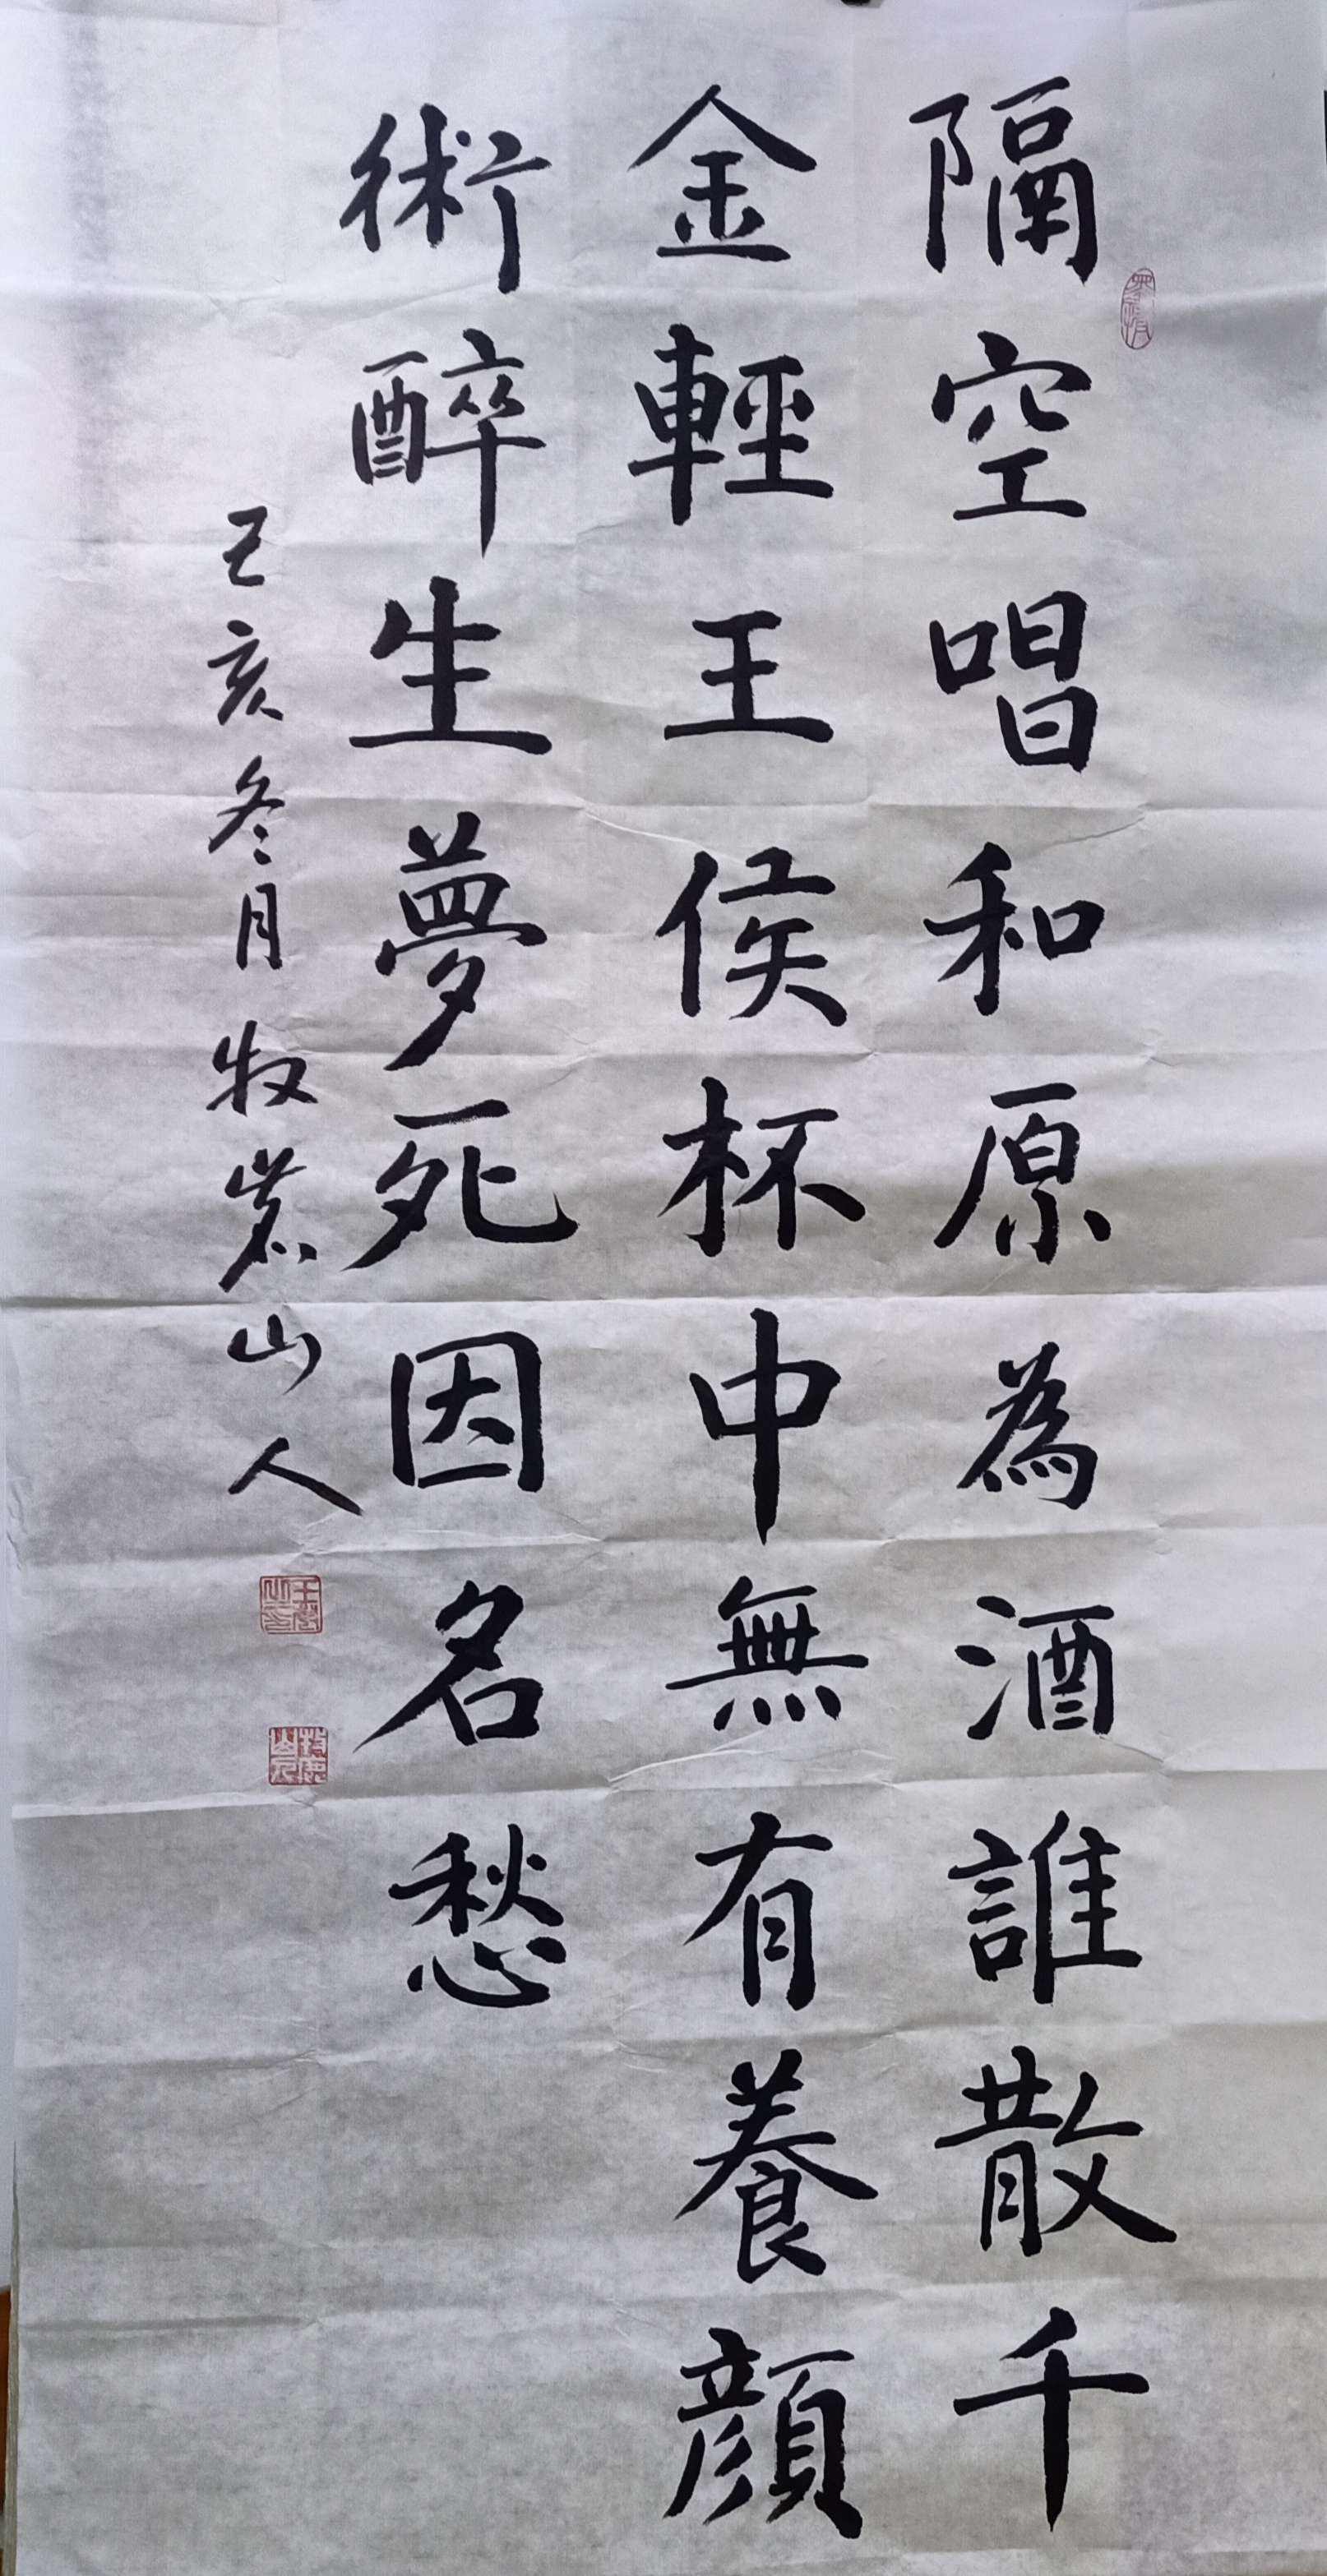 隔空唱和原為酒誰散千
金輕王侯杯中無有養顏
術醉生夢死因名愁
己亥冬月牧崀山人